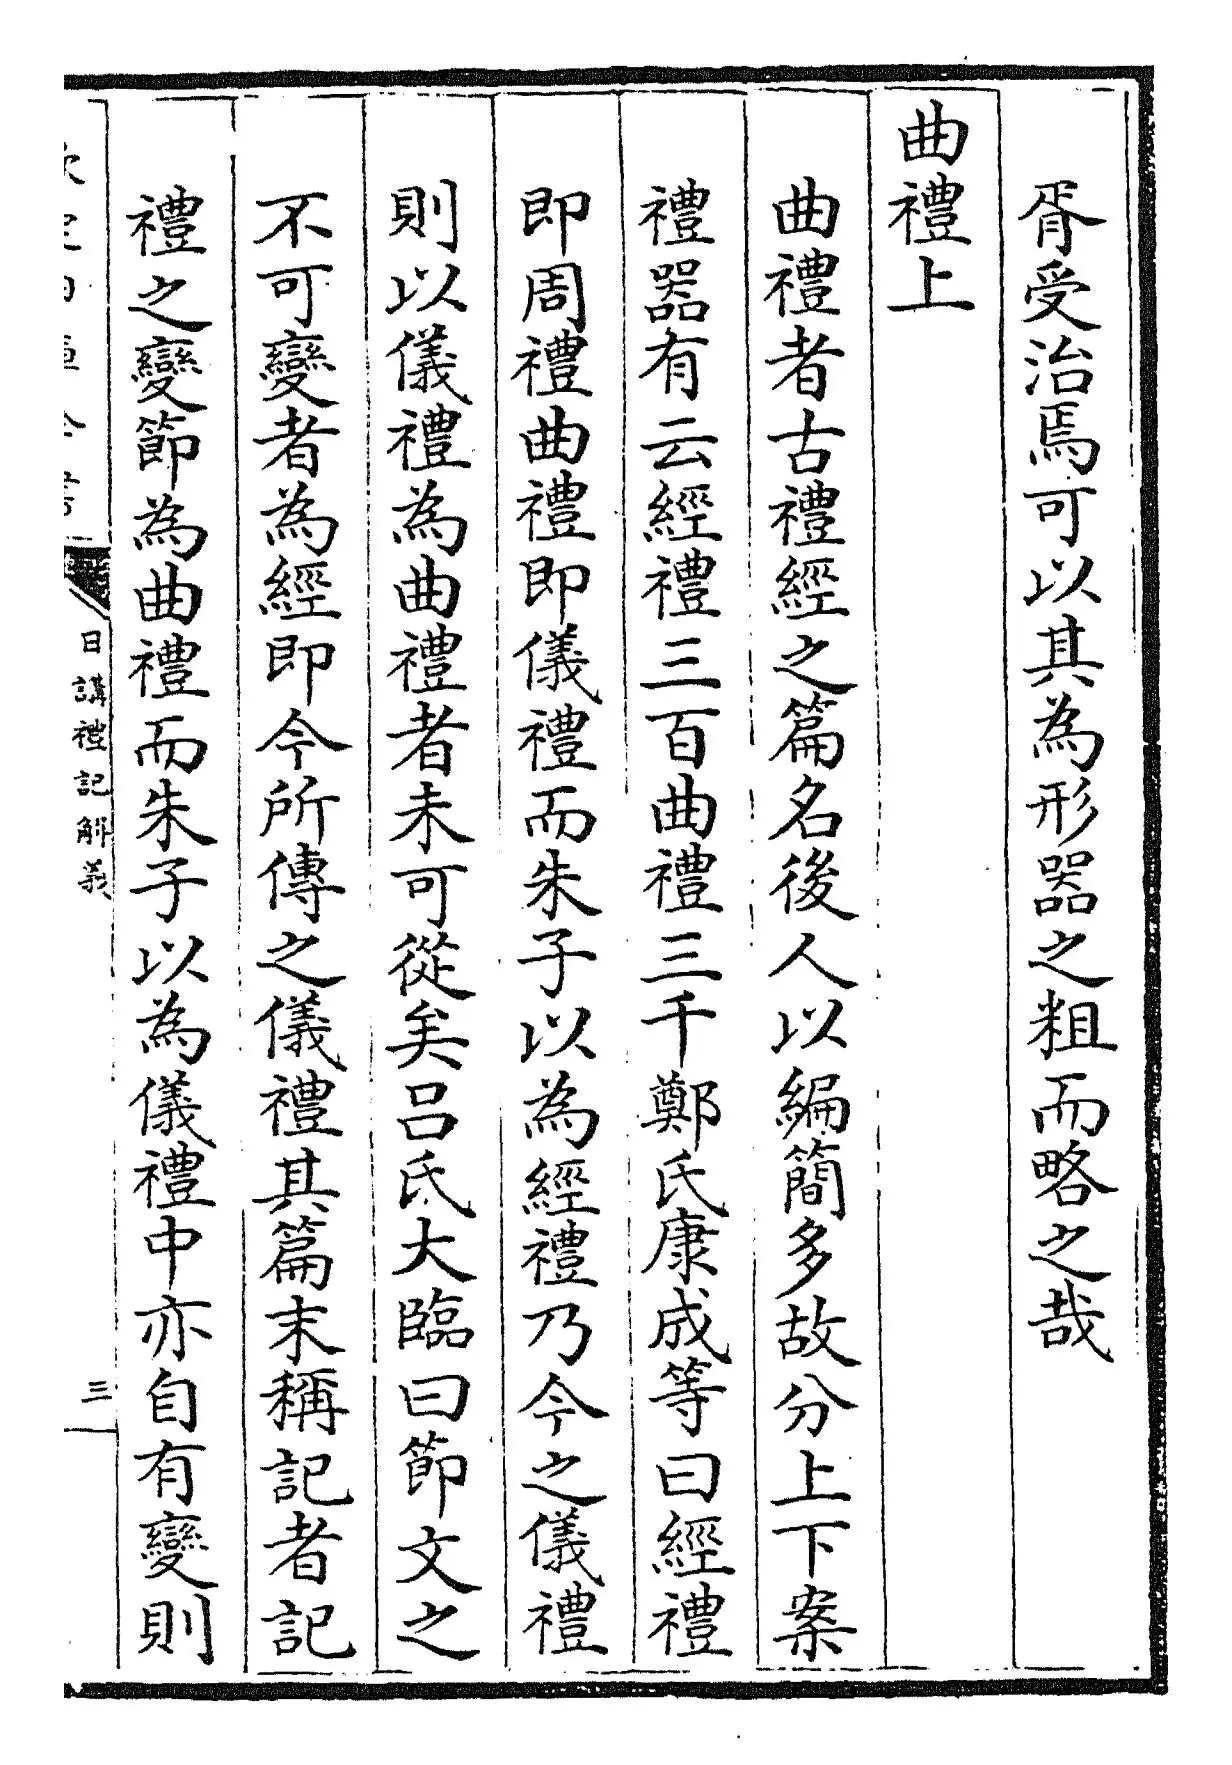 胥受治焉可以其為形器之粗而略之哉
曲禮上
曲禮者古禮經之篇名後人以編簡多故分上下案
禮器有云經禮三百曲禮三千鄭氏康成等曰經禮
即周禮曲禮即儀禮而朱子以為經禮乃今之儀禮
則以儀禮為曲禮者未可從矣呂氏大臨曰節文之
不可變者為經即今所傳之儀禮其篇末稱記者記
禮之變節為曲禮而朱子以為儀禮中亦自有變則
日講禮記解義
三